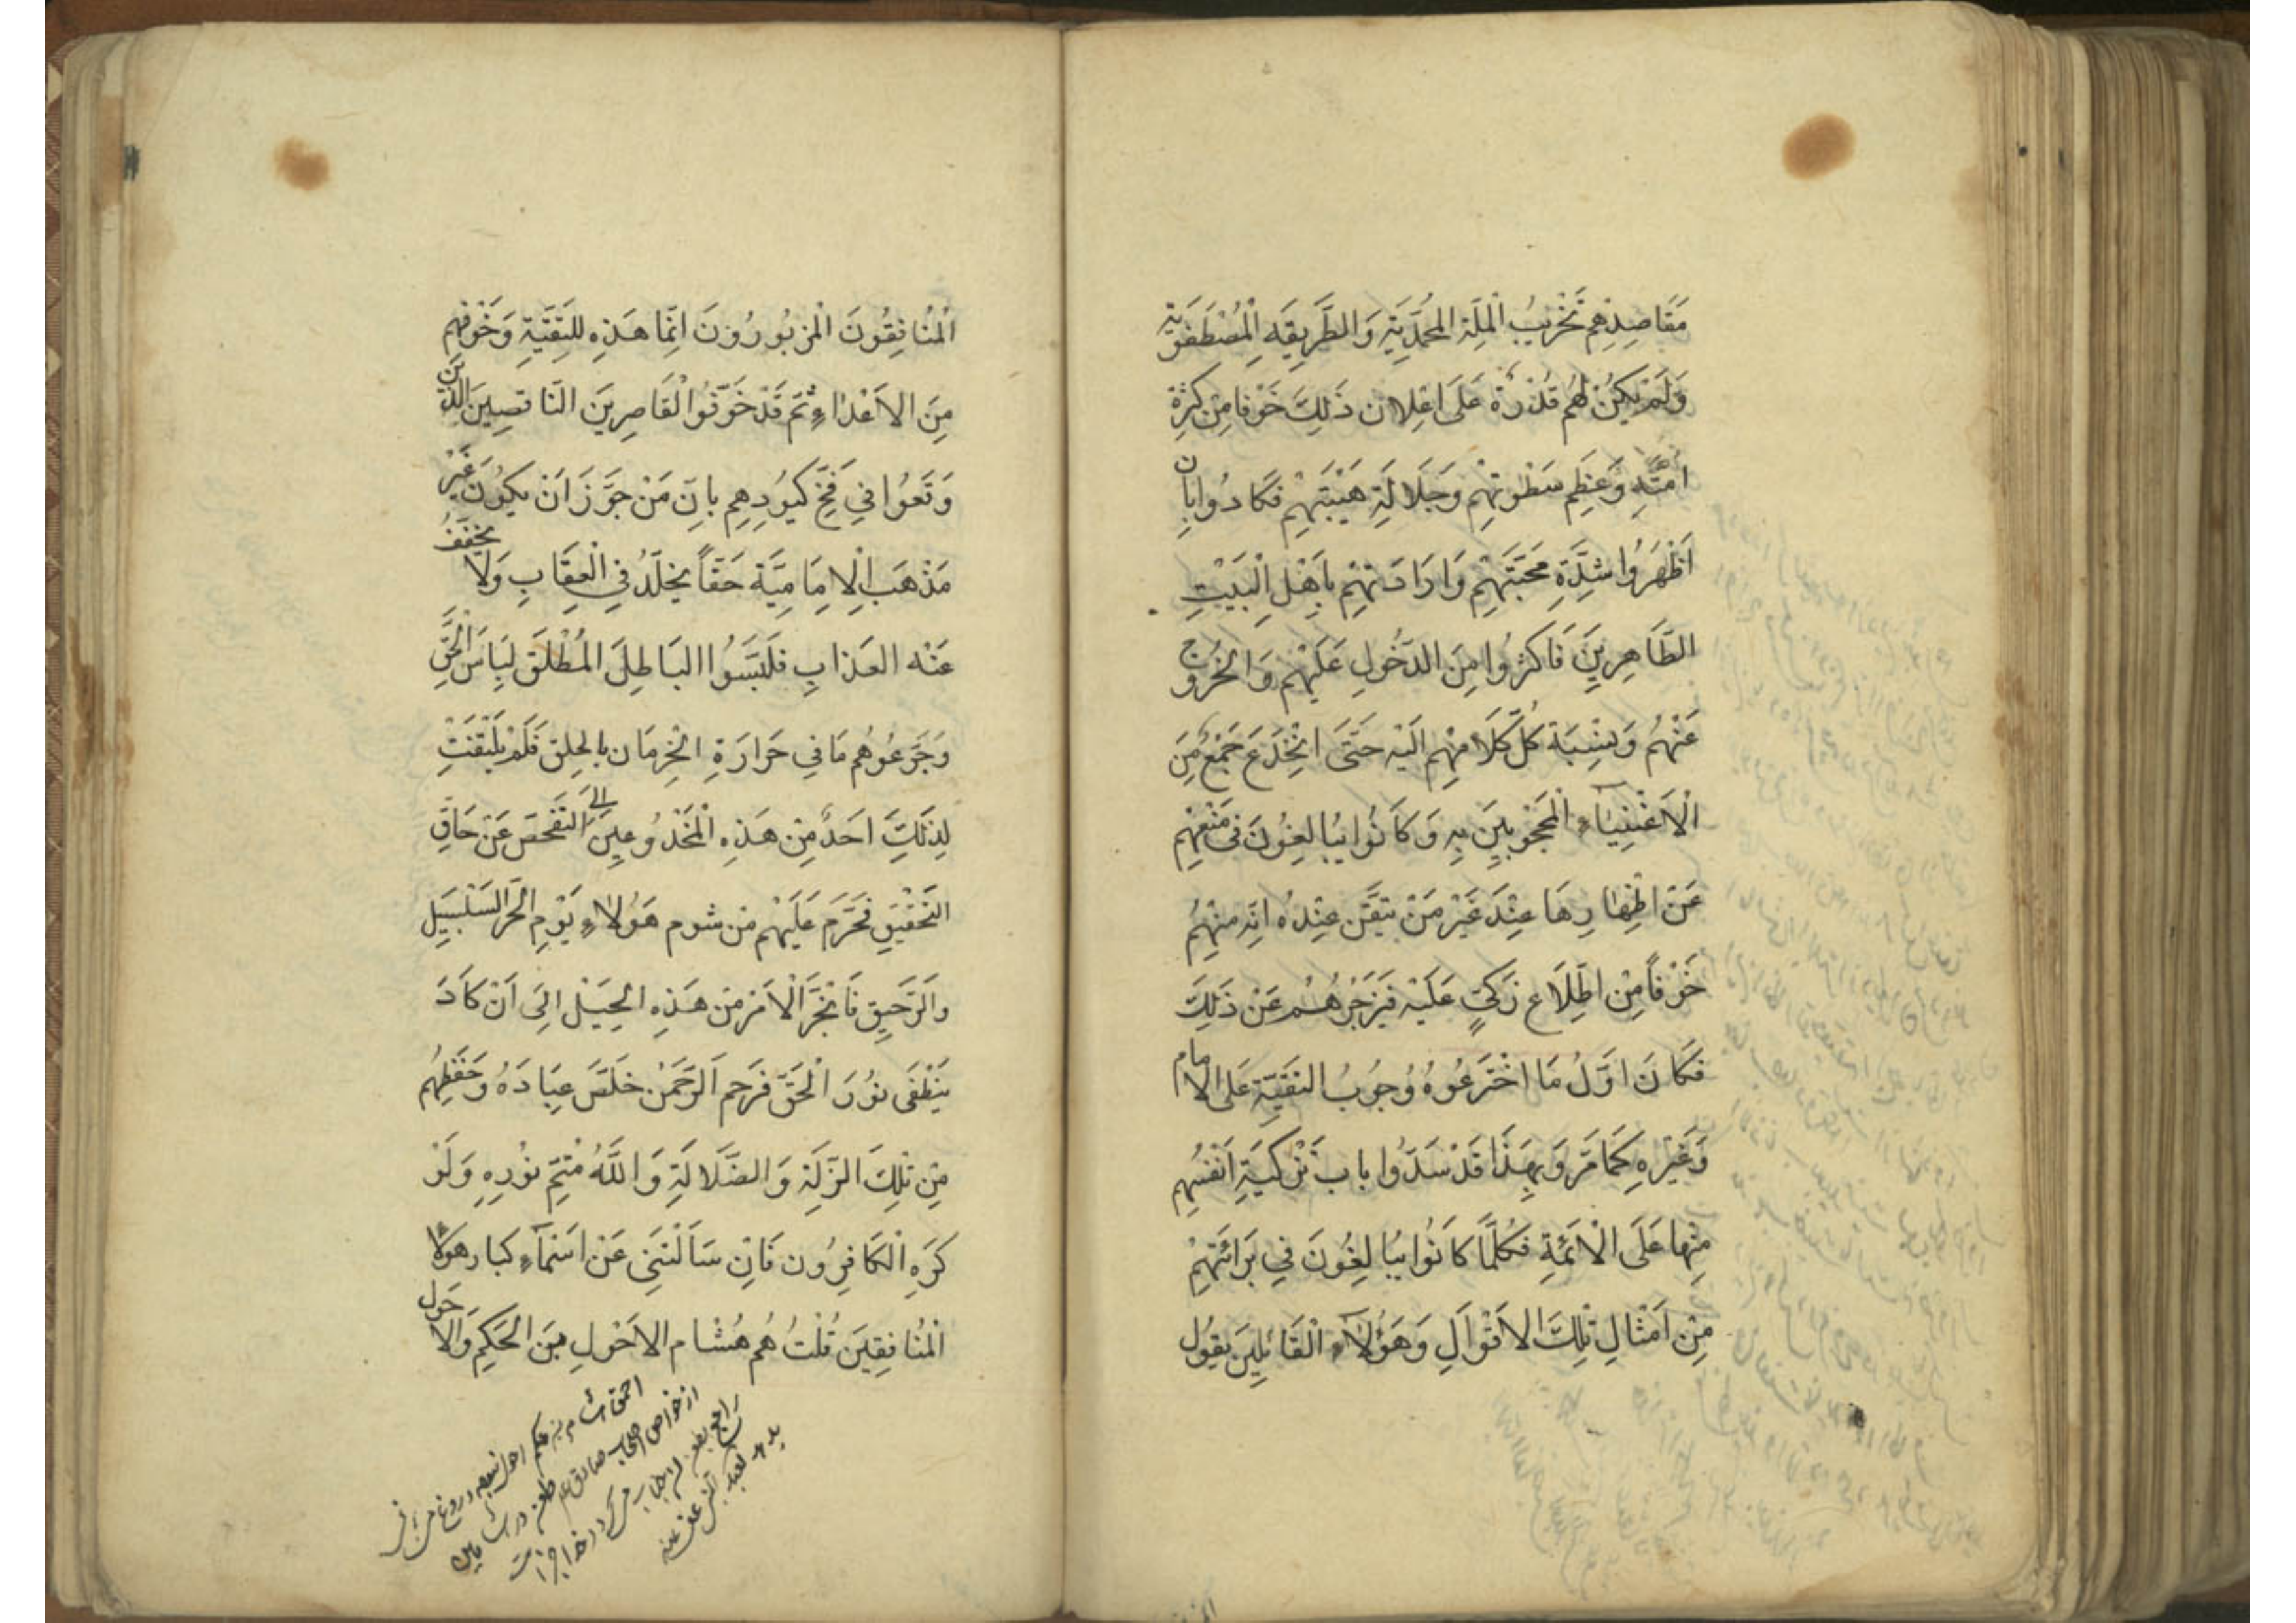 مَقَاصِدِهِم تَخْرِيبُ الْمِلَّةِ المُحَمَّدِيَّةِ وَالطَّرِيقَةِ الْمُصْطَفَوِيَّةِ
وَلَمْ يَكُنْ لَهُم قُدْرَةٌ عَلَى اِعْلَانِ ذَلِكَ خَوْفا مِنْ كَثْرَةِ
اُمَّتِهِ وَعَظِمِ سَطْوَتِهِمْ وَجَلَالَةِ هَيْبَتِهِمْ فَكَادُوا بِاَن
اَظْهَرُوا شِدَّةِ مَحَبَّتِهِمْ وَارَادَتِهِمْ بِاَهْلِ الْبَيْتِ
الطَّاهِرِينَ فَاكَثرُوا مِنَ الدَّخُولِ عَلَيْهِمْ وَالخُرُوج
عَنْهُمْ وَنِسْبَة كُلّ كَلَامِهِم الَيْهِ حَتَّى انْخَدَعَ جَمْعٌ مِنَ
الْاَغْنِيَاءِ الْمَحْجُوبِينَ بِهِ وَكَانُوا يُبَالِغُونَ فى مَنْعِهِمْ
عَنْ اظْهَارِهَا عِنْدَ غَيْرِ مَنْ تيَقَّن عِنْدهُ انّهِ مِنْهُمُ
خَوْفاً مِنْ اطِّلَاعِ زَكىٍّ عَلَيْهِ فَيَزجُرُهُمْ عَنْ ذَلِكَ
فَكَانَ اوَّلُ مَا اخْتَرعُوهُ وُجُوبُ التقَيَّةِ عَلى الامام
وَغَيْرِهِ كَمَا مَرَّ وَبِهَذَا قَدْ سَدّوا باب تَزْكيَةِ اَنْفسُهِم
مِنْهَا عَلَى الْاَئمَّةِ فَكُلَّمَا كَانُوا يُبَالِغُونَ فِي بَرَائَتهِمْ
مِنْ اَمْثَالِ تِلْكَ الاَقْوَالِ وَهَؤُلَاءِ الْقَائلِينَ يَقُول
اَلْمُنَافِقُونَ الْمَزبُورُونَ اِنَّمَا هَذِهِ لِلتَّقيَّةِ وَخَوْفِهِم
مِنَ الاَعْدَاءِ ثمّ قَدْ خَوَّفُوا الْقَاصِرِينَ النَّاقصِينَ الّذين
وَقَعُوا فِي فَخّ كيُودِهِم بِانَّ مَنْ جَوَّزَ اَنْ يَكُونَ غَيْرُ
مَذْهَبِ الْاِمَامِيَّة حَقّاً يُخلَّدُ فِي الْعِقَابِ وَلَا يُخَفَّفُ
عَنْه العَذابِ فلَبَّسَوُا البَاطِلَ المُطْلَقَ لِبَاسَ الْحَقِّ
وَجَرعُوهُم مَا فِي حَرَارَةِ الْحِرمَان بالحلِق فَلَمْ يَلْتَفتْ
لِذَلِكَ احَدٌ مِنْ هَذِهِ الْمَخْدُوعِينَ الى التفَحّص عَنْ حَاقِّ
التَحْقِيقِ فَحَرَمَ عَلَيْهِم مِنْ شوم هَؤُلَاءِ يَوْمِ الحَرّ السَلْسَبِيلِ
والرَّحَيقِ فَانْجَرَّ الْاَمْرُ مِنْ هَذِهِ الحِيَل الىَ اَنْ كَادَ
يَنْطَفَى نوُرُ الْحَقّ فَرَحِمَ الرَّحْمَنُ خلَّصَ عِبَادَهُ وَحَفَظِهُم
مِنْ تِلْكَ الزَّلَّةِ وَالضَّلَالَةِ وَاللَّهُ مُتِمّ نُوْرِهِ وَلَوْ
كَرَهِ الْكَافِرُون فَانِ سَاَلْتَنِى عَنْ اَسْمَاءِ كبار هؤلاء
الْمُنَافِقِينَ قُلْتُ هُم هُشَام الاَحْوَلِ بن الحَكِيمِ وَالاحول